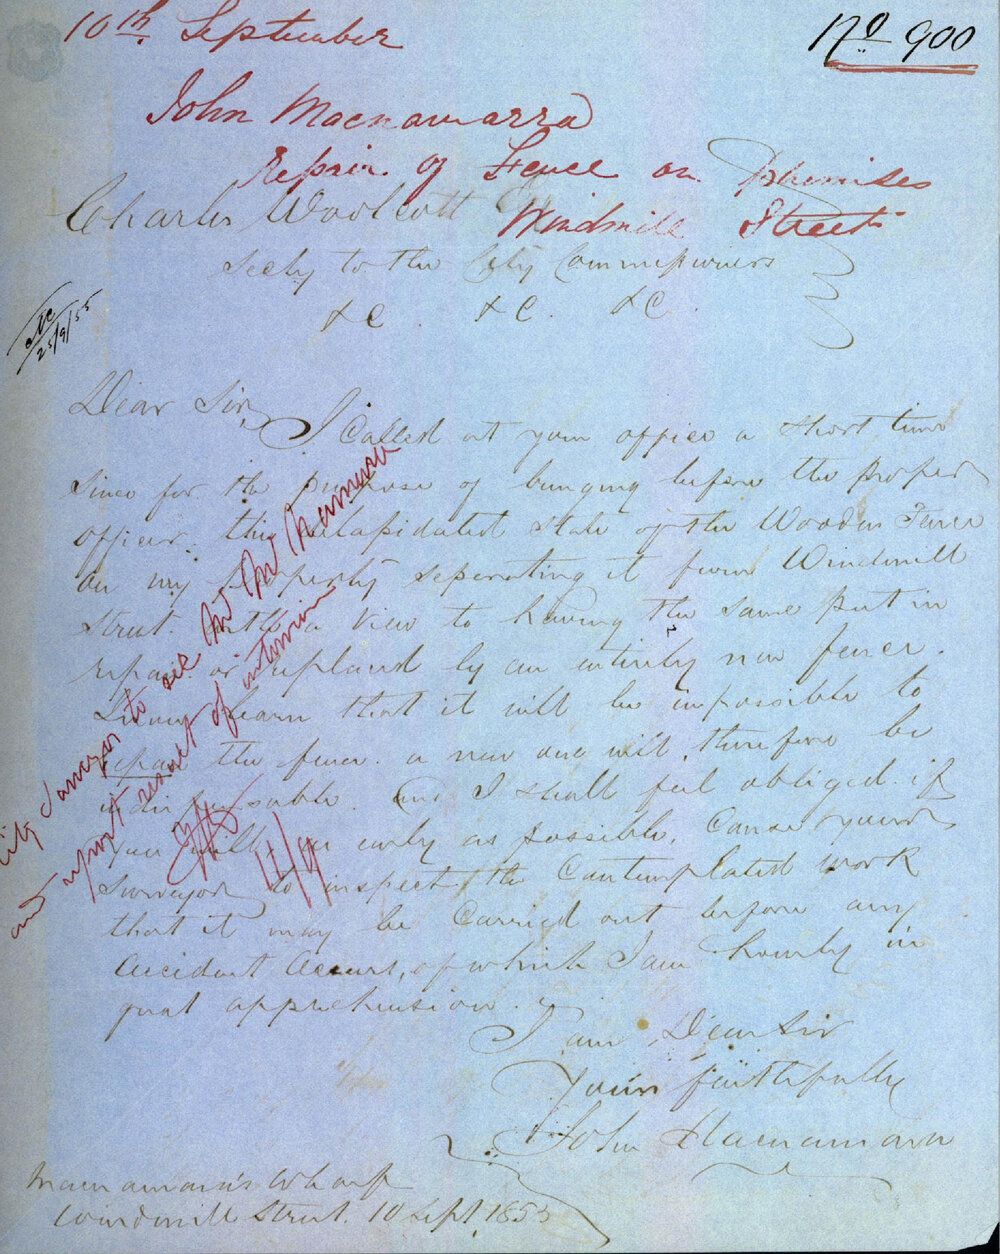 10th. September
No 900
John Macnamarra
Repair of Fence on Premises
Windmill Street
Charles Woolcott Esq
Secty to the City Commissioners
&C. &C. &C.
25/9/55
Dear Sir,
I Called at your office a short time
since for the purpose of bringing before the proper
officer. the delapidated state of the Wooden Fence
on my Property seperating it from Windmill
Street. with a view to having the same put in
repair or replaced by an entirely new fence.
I now learn that it will be impossible to
repair the fence. a new one will, therefore be
indispensable. and I shall feel obliged if
you will as early as possible, Cause your
Surveyor to inspect the Contemplated work
that it may be Carried out before any
Accident Occurs, of which I am hourly in
great apprehension.
I am Dear Sir
Yours faithfully
John Macnamara
Macnamara's Wharf
Windmill Street. 10 Sept 1855
City Surveyor to see Mr McNamara
and report result of interview
11/9